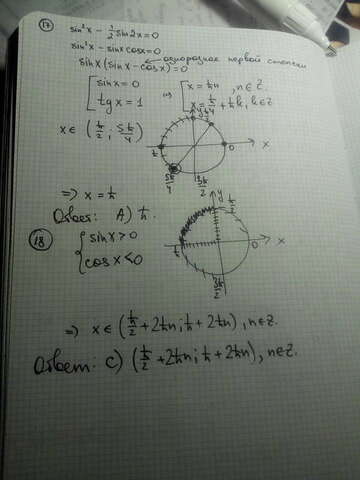 17
sin²x - 1/2 sin2x = 0
sin²x - sinx cosx = 0
однородное первой степени
sinx (sinx - cosx) = 0
[ sinx = 0
tgx = 1
⇔ [ x = πn, n∈Z.
x = π/4 + πk, k∈Z
x ∈ (π/2; 5π/4)
y
π
0
x
5π/4
3π/2
⇒ x = π
Ответ: A) π.
18
{ sinx > 0
cosx < 0
y
π/2
π
0
x
3π/2
⇒ x ∈ (π/2 + 2πn; π + 2πn), n∈Z.
Ответ: C) (π/2 + 2πn; π + 2πn), n∈Z.